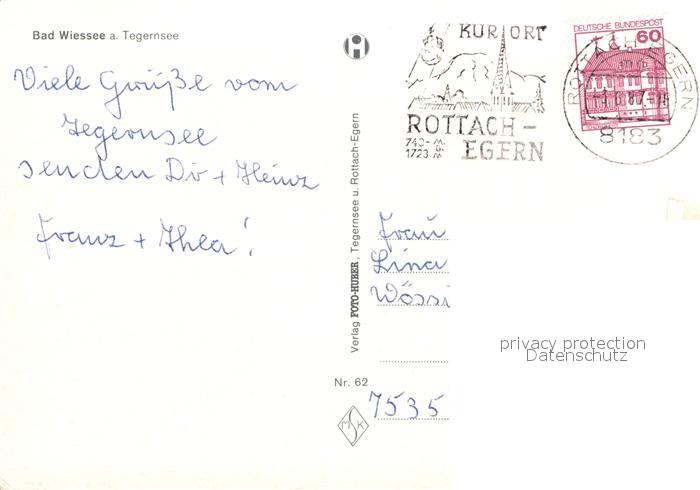 Bad Wiessee a. Tegernsee
Viele Grüße vom
Tegernsee
senden Dir + Heinz
Franz + Thea!
Verlag FOTO-HUBER, Tegernsee u. Rottach-Egern
Nr. 62
MSK
KURORT
ROTTACH-
EGERN
740-
1723 M
DEUTSCHE BUNDESPOST
60
ROTTACH-EGERN
8183
Frau
Lina
Wössi
7535
privacy protection
Datenschutz